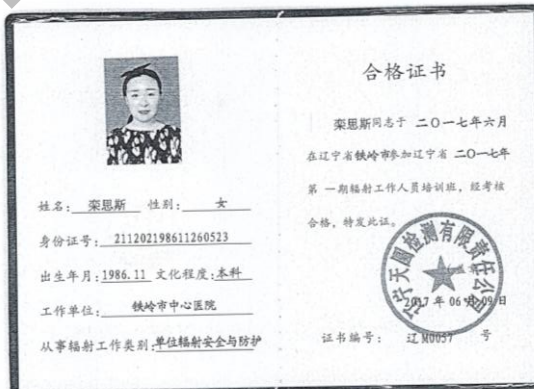 姓名：栾思斯 性别：女
身份证号：211202198611260523
出生年月：1986.11 文化程度：本科
工作单位：铁岭市中心医院
从事辐射工作类别：单位辐射安全与防护
合格证书
栾思斯同志于 二〇一七年六月
在辽宁省铁岭市参加辽宁省 二〇一七年
第 一期辐射工作人员培训班，经考核
合格，特发此证。
2017 年 06 月 09 日
证书编号：辽 M0057 号